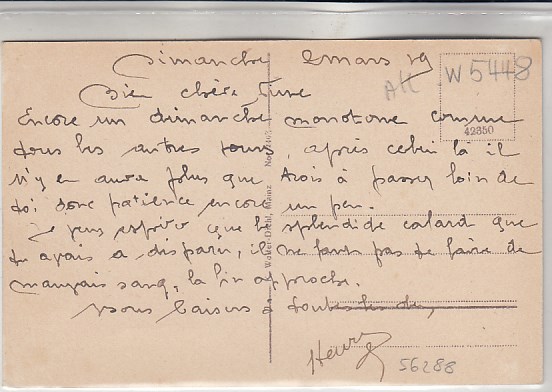 Dimanche 2 mars 19
W5448
Bien chère
42350
Encore un dimanche monotone comme
tous les autres jours, après celui là il
n'y en aura plus que trois à passer loin de
toi donc patience encore un peu.
Je veux espérer que le splendide cafard que
tu avais a disparu, il ne faut pas te faire de
mauvais sang, la fin approche.
Bons baisers à toutes les deux,
Henry
56288
Walter Diehl, Mainz